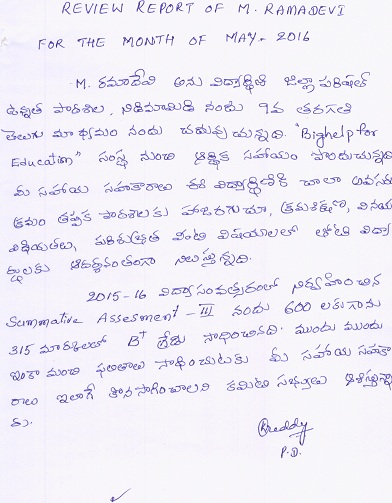 REVIEW REPORT OF M. RAMADEVI
FOR THE MONTH OF MAY- 2016
M. రమాదేవి అను విద్యార్థిని జిల్లా పరిషత్
ఉన్నత పాఠశాల, నిడిమామిడి నందు 9వ తరగతి
తెలుగు మాధ్యమం నందు చదువు చున్నది. "Bighelp for
Education" సంస్థ నుంచి ఆర్థిక సహాయం పొందుచున్నది
మీ సహాయ సహకారాలు ఈ విద్యార్థినికి చాలా అవసరం
క్రమం తప్పక పాఠశాలకు హాజరగుచూ, క్రమశిక్షణ, వినయ
విధేయతలు, పరిశుభ్రత వంటి విషయాలలో తోటి విద్యా
ర్థులకు ఆదర్శవంతంగా నిలుస్తున్నది.
2015-16 విద్యా సంవత్సరంలో నిర్వహించిన
Summative Assesment - III నందు 600 లకు గాను
315 మార్కులతో B+ గ్రేడు సాధించినది. ముందు ముందు
ఇంకా మంచి ఫలితాలు సాధించుటకు మీ సహాయ సహకా
రాలు ఇలాగే కొనసాగించాలని కమిటి సభ్యులు ఆశిస్తున్నా
రు.
Reddy
P.D.